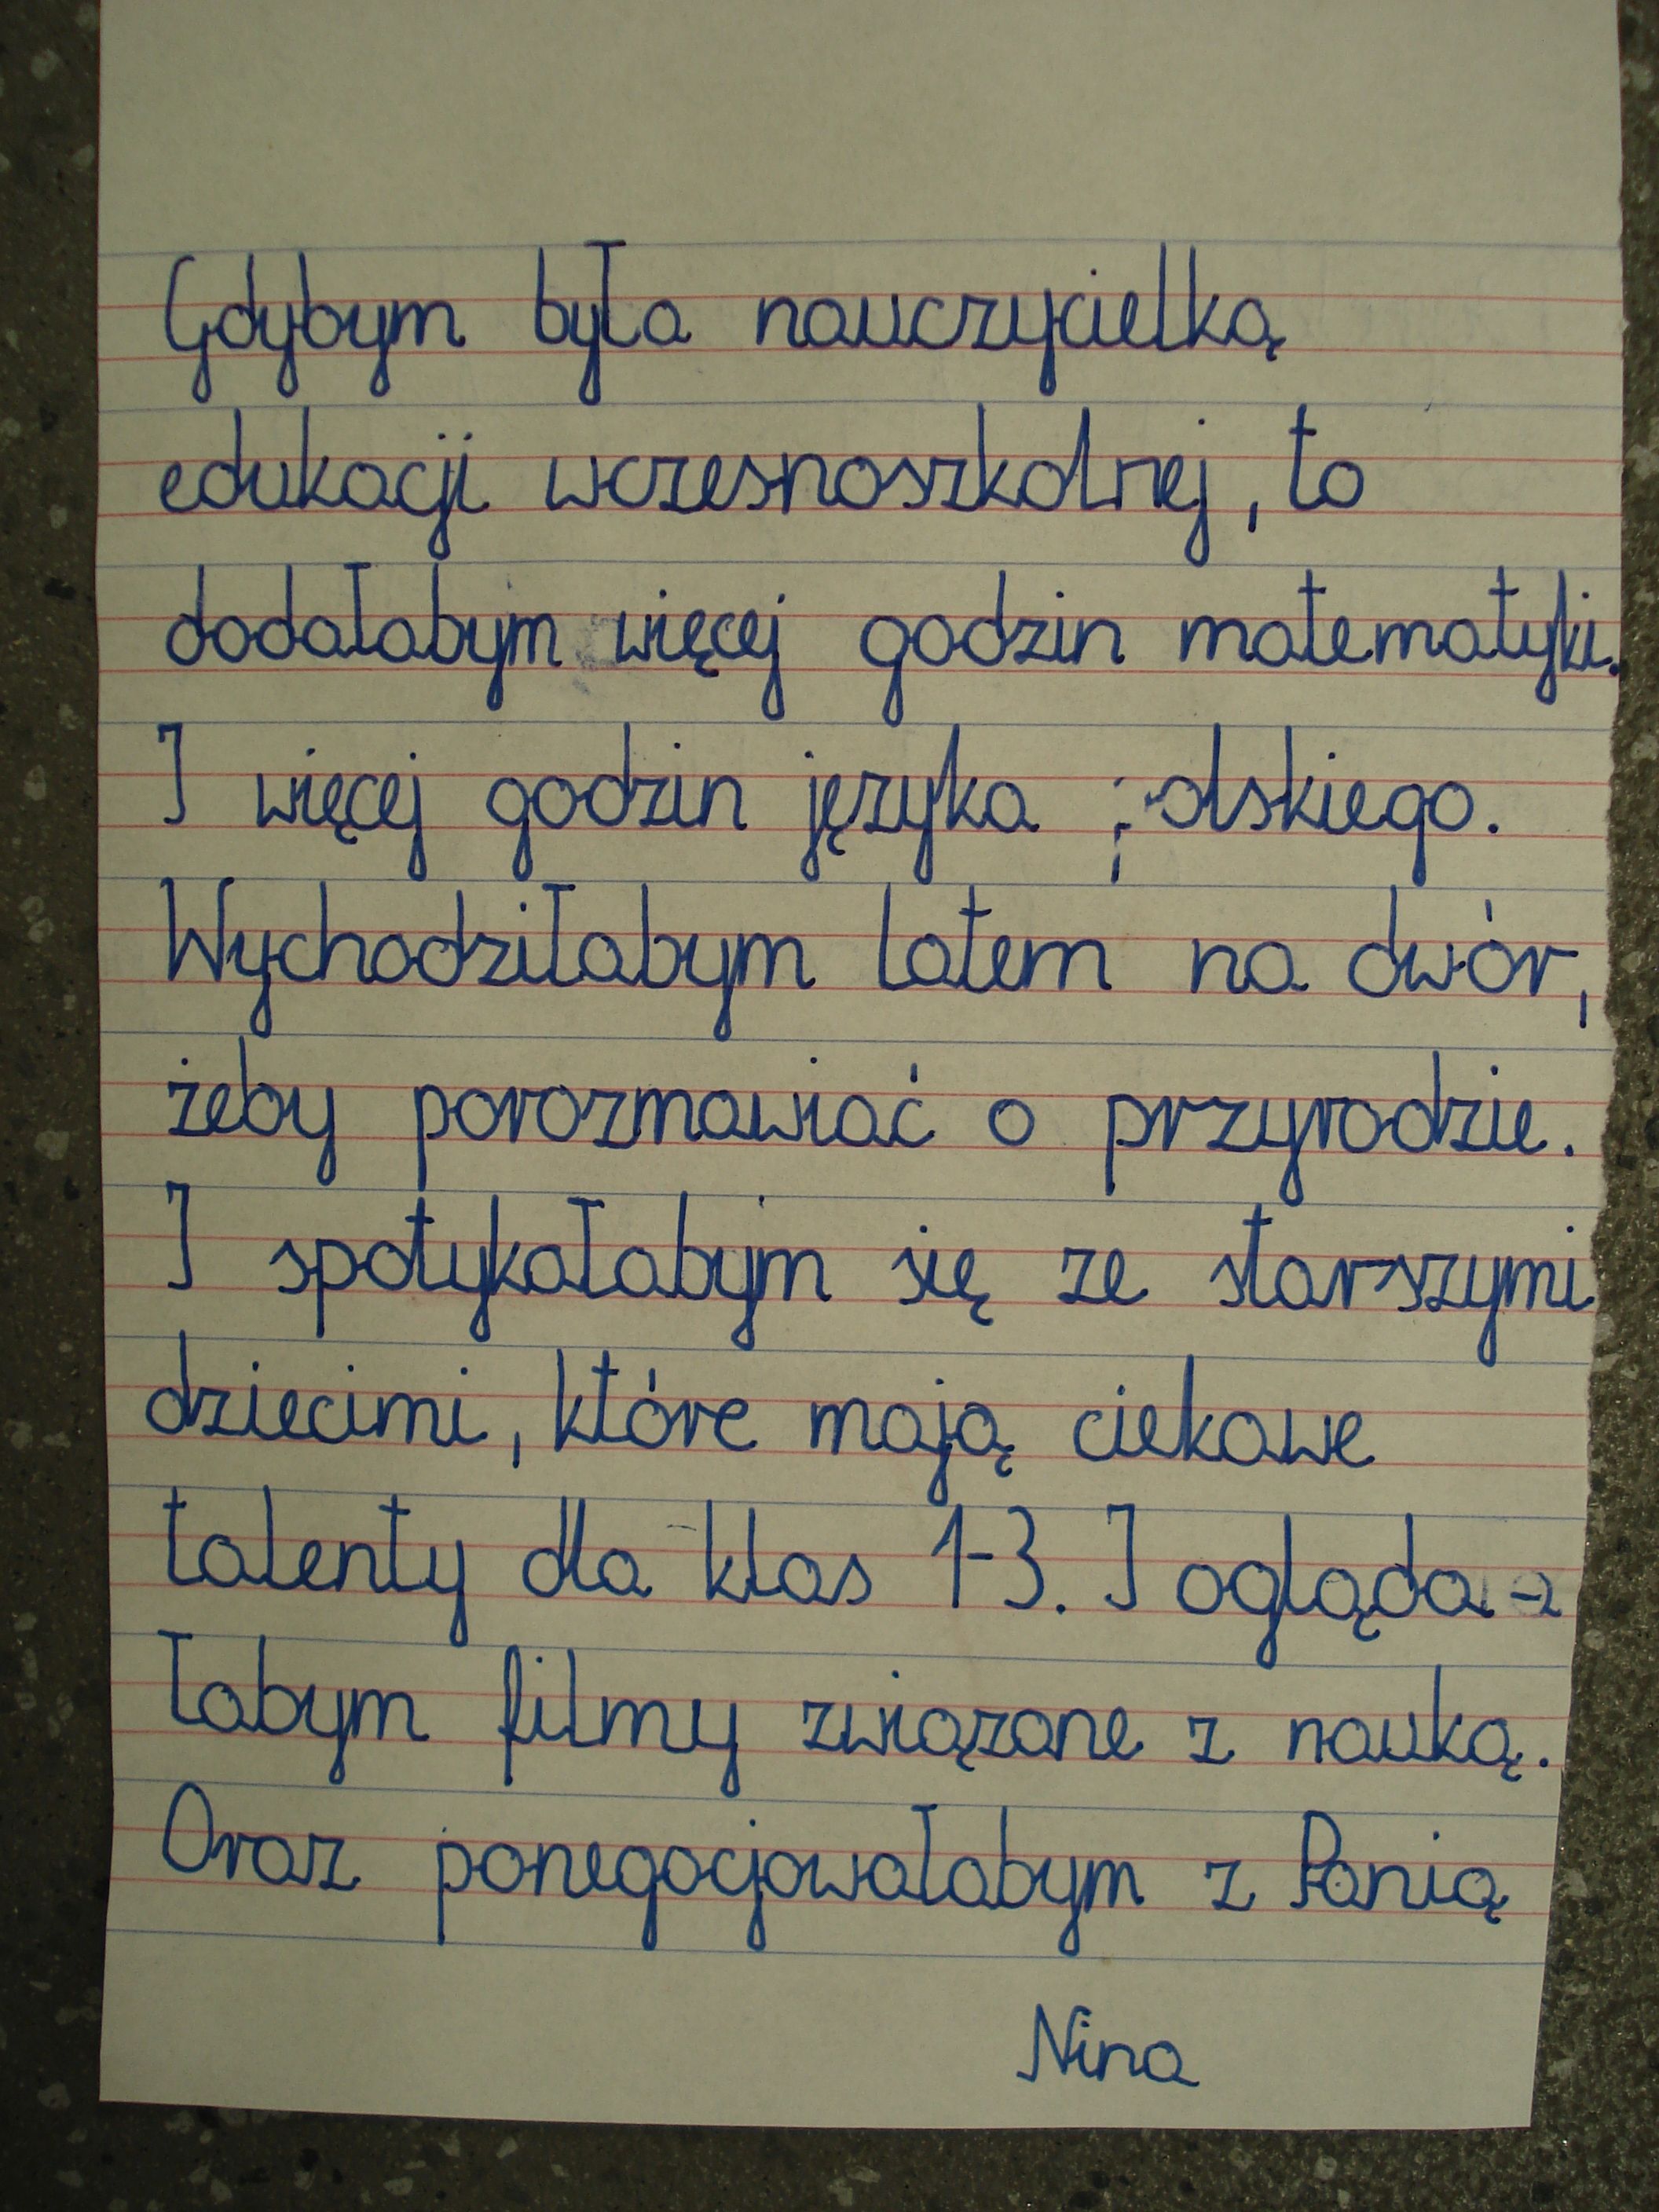 Gdybym była nauczycielką
edukacji wczesnoszkolnej, to
dodałabym więcej godzin matematyki.
I więcej godzin języka polskiego.
Wychodziłabym latem na dwór,
żeby porozmawiać o przyrodzie.
I spotykałabym się ze starszymi
dziecimi, które mają ciekawe
talenty dla klas 1-3. I ogląda-
łabym filmy związane z nauką.
Oraz ponegocjowałabym z Panią
Nina